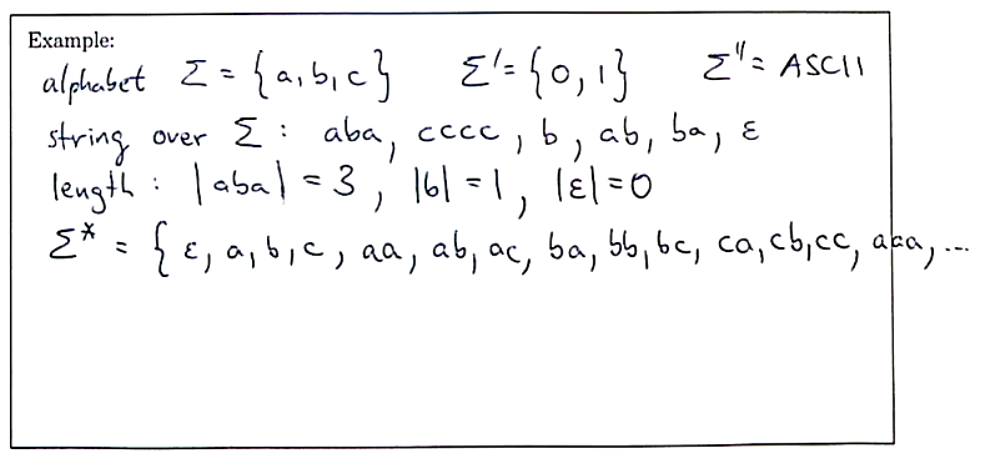 Example:
alphabet Σ = {a, b, c} Σ' = {0, 1} Σ'' = ASCII
string over Σ : aba, cccc, b, ab, ba, ε
length : |aba| = 3, |b| = 1, |ε| = 0
Σ* = {ε, a, b, c, aa, ab, ac, ba, bb, bc, ca, cb, cc, aaa, ...